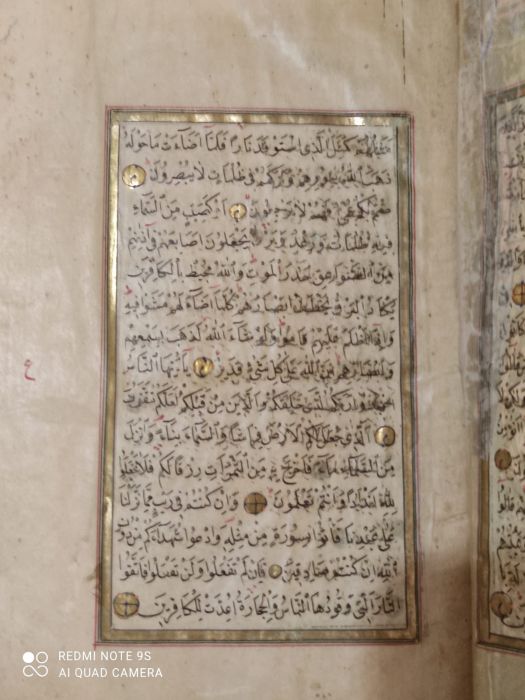 مثلهم كمثل الذى استوقد نارا فلما اضاءت ما حوله
ذهب الله بنورهم وتركهم فى ظلمات لا يبصرون
صم بكم عمى فهم لا يرجعون او كصيب من السماء
فيه ظلمات ورعد وبرق يجعلون اصابعهم فى اذانهم
من الصواعق حذر الموت والله محيط بالكافرين
يكاد البرق يخطف ابصارهم كلما اضاء لهم مشوا فيه
واذا اظلم عليهم قاموا ولو شاء الله لذهب بسمعهم
وابصارهم ان الله على كل شئ قدير يا ايها الناس
اعبدوا ربكم الذى خلقكم والذين من قبلكم لعلكم تتقون
الذى جعل لكم الارض فراشا والسماء بناء وانزل
من السماء ماء فاخرج به من الثمرات رزقا لكم فلا تجعلوا
لله اندادا وانتم تعلمون وان كنتم فى ريب مما نزلنا
على عبدنا فاتوا بسورة من مثله وادعوا شهداءكم من دون
الله ان كنتم صادقين فان لم تفعلوا ولن تفعلوا فاتقوا
النار التى وقودها الناس والحجارة اعدت للكافرين
ع
REDMI NOTE 9S
AI QUAD CAMERA